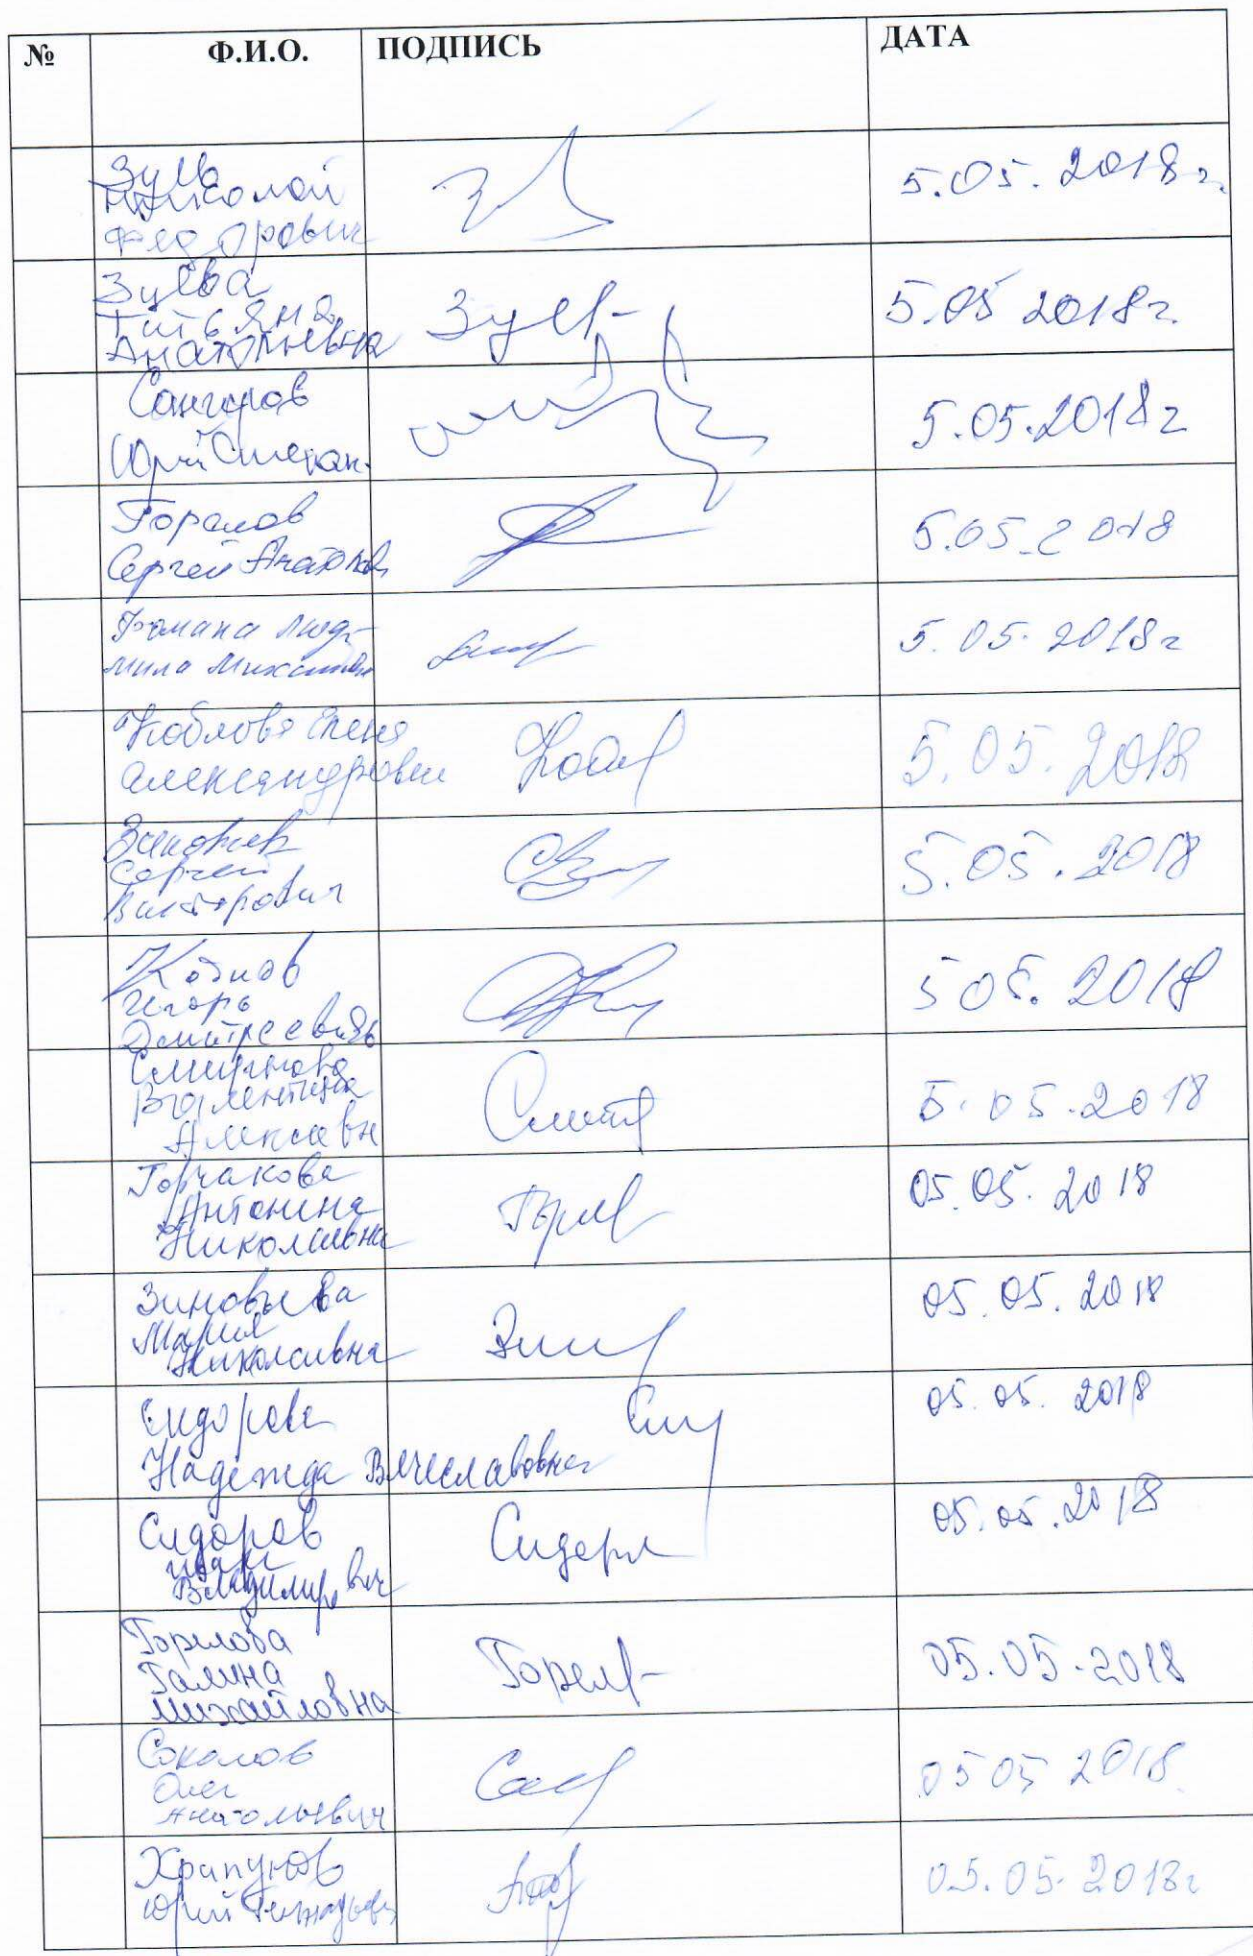 № Ф.И.О. ПОДПИСЬ ДАТА
Зуев
Николай
Федорович
5.05.2018 г.
Зуева
Татьяна
Анатольевна
Зуев
5.05 2018г.
Юрий Степан.
5.05.2018 г
Горелов
Сергей Анатольев
5.05.2018
Людмила
5.05.2018 г
Коблова Елена
Александровн
Кобл
5.05.2018
Сергей
Викторович
5.05.2018
Игорь
Дмитреевичь
5 05. 2018
Смирнова
Валентина
Алексевн
5.05.2018
Горчакова
Антонина
Николаевна
05.05.2018
Зиновьева
Мария
Николаивна
05.05.2018
Сидорова
Надежда Вячеславовна
05.05.2018
Сидоров
Иван
Владимирович
05.05.2018
Горелова
Галина
Михайловна
Горел
05.05.2018
Соколов
Олег
Анатольевич
05 05 2018
Храпунов
Юрий Геннадьев
05.05.2018г